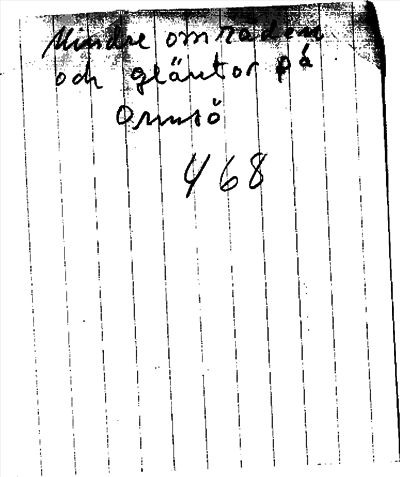 Mindre områden
och gläntor på
Ormsö
468